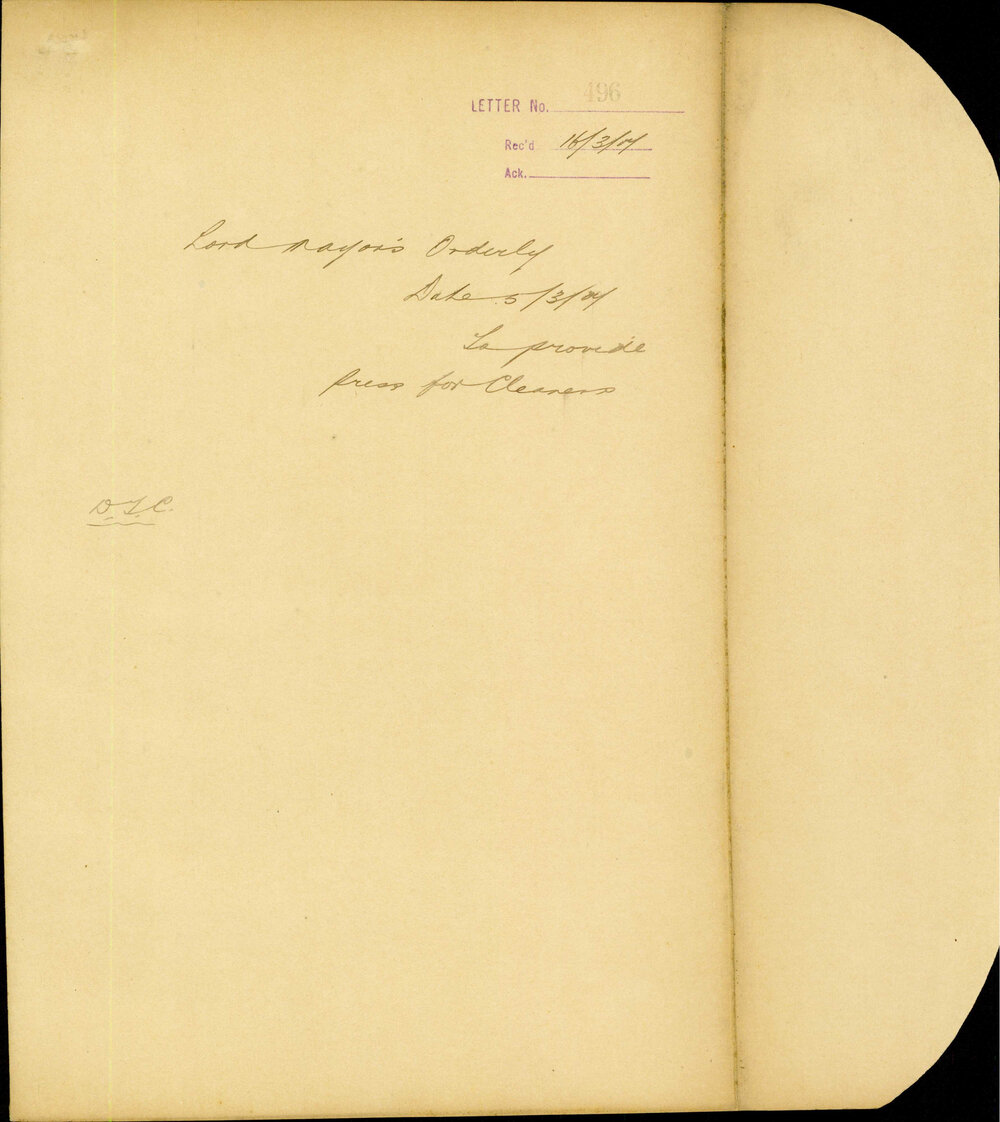 LETTER No. 496
Rec'd 16/3/04
Ack.
Lord Mayor's Orderly
Date 5/3/04
To provide
Press for Cleaners
D.T.C.